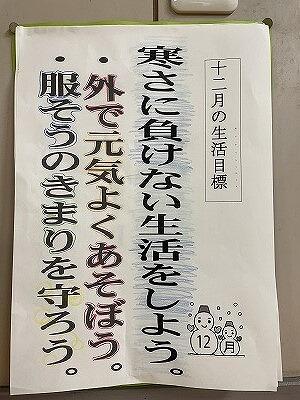 十二月の生活目標
寒さに負けない生活をしよう。
・外で元気よくあそぼう。
・服そうのきまりを守ろう。
12
月